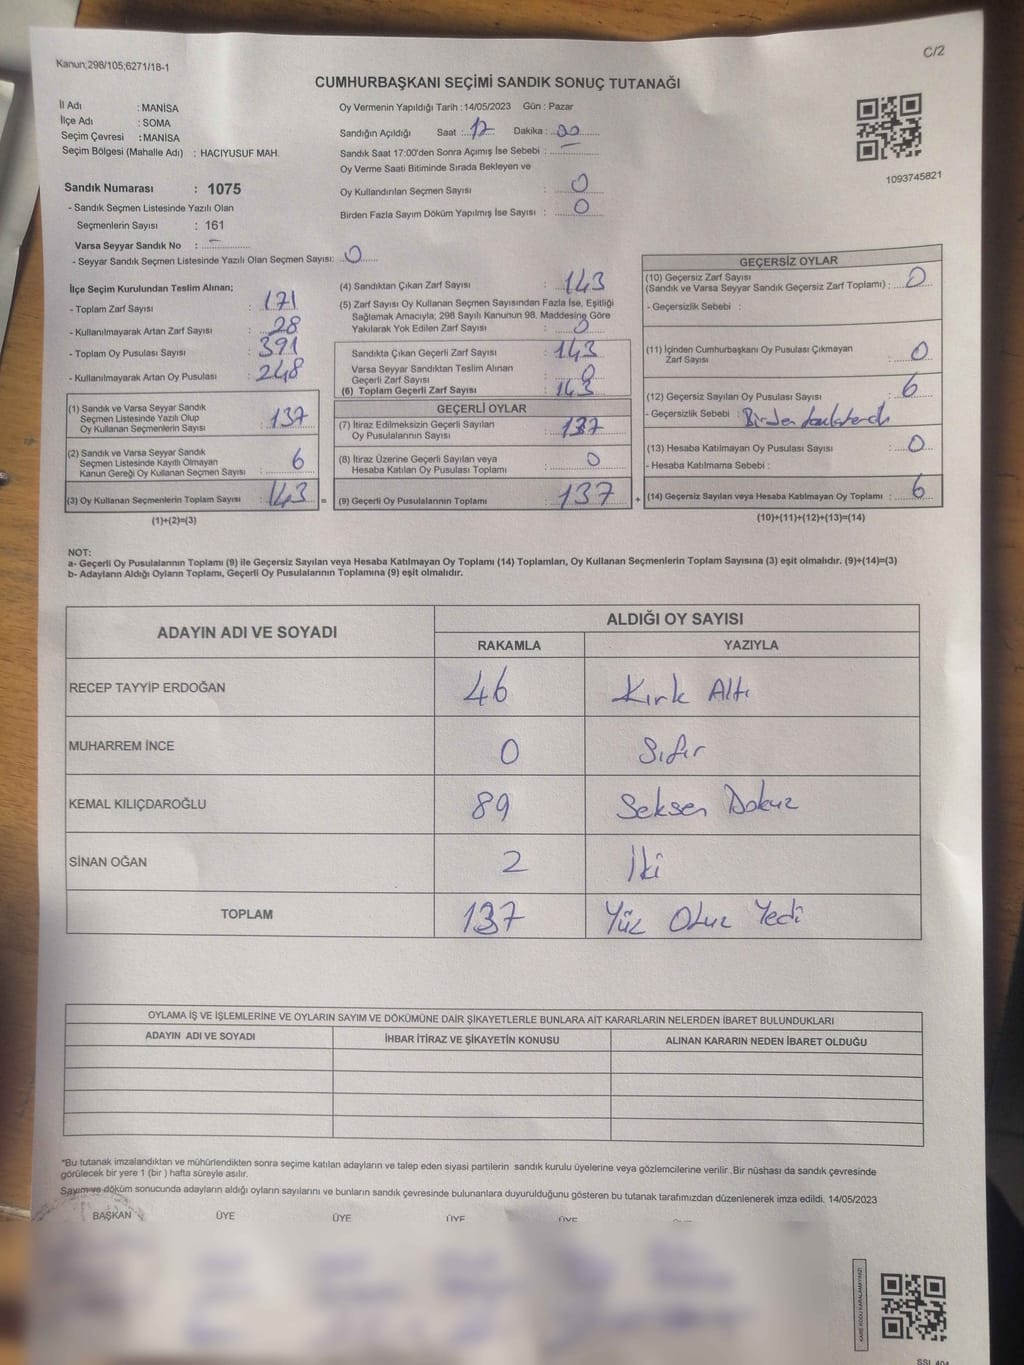 Kanun;298/105;6271/18-1
C/2
CUMHURBAŞKANI SEÇİMİ SANDIK SONUÇ TUTANAĞI
İl Adı : MANİSA
İlçe Adı : SOMA
Seçim Çevresi : MANİSA
Seçim Bölgesi (Mahalle Adı) : HACIYUSUF MAH.
Oy Vermenin Yapıldığı Tarih : 14/05/2023 Gün : Pazar
Sandığın Açıldığı Saat : 17 Dakika : 00
Sandık Saat 17:00'den Sonra Açımış İse Sebebi : —
Oy Verme Saati Bitiminde Sırada Bekleyen ve
Oy Kullandırılan Seçmen Sayısı : 0
Birden Fazla Sayım Döküm Yapılmış İse Sayısı : 0
1093745821
Sandık Numarası : 1075
- Sandık Seçmen Listesinde Yazılı Olan
Seçmenlerin Sayısı : 161
Varsa Seyyar Sandık No : -
- Seyyar Sandık Seçmen Listesinde Yazılı Olan Seçmen Sayısı: 0
İlçe Seçim Kurulundan Teslim Alınan;
- Toplam Zarf Sayısı : 171
- Kullanılmayarak Artan Zarf Sayısı : 28
- Toplam Oy Pusulası Sayısı : 391
- Kullanılmayarak Artan Oy Pusulası : 248
(1) Sandık ve Varsa Seyyar Sandık
Seçmen Listesinde Yazılı Olup
Oy Kullanan Seçmenlerin Sayısı : 137
(2) Sandık ve Varsa Seyyar Sandık
Seçmen Listesinde Kayıtlı Olmayan
Kanun Gereği Oy Kullanan Seçmen Sayısı : 6
(3) Oy Kullanan Seçmenlerin Toplam Sayısı : 143 =
(1)+(2)=(3)
(4) Sandıktan Çıkan Zarf Sayısı : 143
(5) Zarf Sayısı Oy Kullanan Seçmen Sayısından Fazla İse, Eşitliği
Sağlamak Amacıyla; 298 Sayılı Kanunun 98. Maddesine Göre
Yakılarak Yok Edilen Zarf Sayısı : 0
Sandıkta Çıkan Geçerli Zarf Sayısı : 143
Varsa Seyyar Sandıktan Teslim Alınan
Geçerli Zarf Sayısı : 0
(6) Toplam Geçerli Zarf Sayısı : 143
GEÇERLİ OYLAR
(7) İtiraz Edilmeksizin Geçerli Sayılan
Oy Pusulalarının Sayısı : 137
(8) İtiraz Üzerine Geçerli Sayılan veya
Hesaba Katılan Oy Pusulası Toplamı : 0
(9) Geçerli Oy Pusulalarının Toplamı : 137 +
GEÇERSİZ OYLAR
(10) Geçersiz Zarf Sayısı
(Sandık ve Varsa Seyyar Sandık Geçersiz Zarf Toplamı) : 0
- Geçersizlik Sebebi :
(11) İçinden Cumhurbaşkanı Oy Pusulası Çıkmayan
Zarf Sayısı : 0
(12) Geçersiz Sayılan Oy Pusulası Sayısı : 6
- Geçersizlik Sebebi : Birden
(13) Hesaba Katılmayan Oy Pusulası Sayısı : 0
- Hesaba Katılmama Sebebi :
(14) Geçersiz Sayılan veya Hesaba Katılmayan Oy Toplamı : 6
(10)+(11)+(12)+(13)=(14)
NOT:
a- Geçerli Oy Pusulalarının Toplamı (9) ile Geçersiz Sayılan veya Hesaba Katılmayan Oy Toplamı (14) Toplamları, Oy Kullanan Seçmenlerin Toplam Sayısına (3) eşit olmalıdır. (9)+(14)=(3)
b- Adayların Aldığı Oyların Toplamı, Geçerli Oy Pusulalarının Toplamına (9) eşit olmalıdır.
ADAYIN ADI VE SOYADI ALDIĞI OY SAYISI
RAKAMLA YAZIYLA
RECEP TAYYİP ERDOĞAN 46 Kırk Altı
MUHARREM İNCE 0 Sıfır
KEMAL KILIÇDAROĞLU 89 Seksen Dokuz
SİNAN OĞAN 2 İki
TOPLAM 137 Yüz Otuz Yedi
OYLAMA İŞ VE İŞLEMLERİNE VE OYLARIN SAYIM VE DÖKÜMÜNE DAİR ŞİKAYETLERLE BUNLARA AİT KARARLARIN NELERDEN İBARET BULUNDUKLARI
ADAYIN ADI VE SOYADI İHBAR İTİRAZ VE ŞİKAYETİN KONUSU ALINAN KARARIN NEDEN İBARET OLDUĞU
*Bu tutanak imzalandıktan ve mühürlendikten sonra seçime katılan adayların ve talep eden siyasi partilerin sandık kurulu üyelerine veya gözlemcilerine verilir. Bir nüshası da sandık çevresinde
görülecek bir yere 1 (bir ) hafta süreyle asılır.
Sayım ve döküm sonucunda adayların aldığı oyların sayılarını ve bunların sandık çevresinde bulunanlara duyurulduğunu gösteren bu tutanak tarafımızdan düzenlenerek imza edildi. 14/05/2023
BAŞKAN ÜYE ÜYE ÜYE ÜYE
KARE KODU KARALAMAYINIZ!